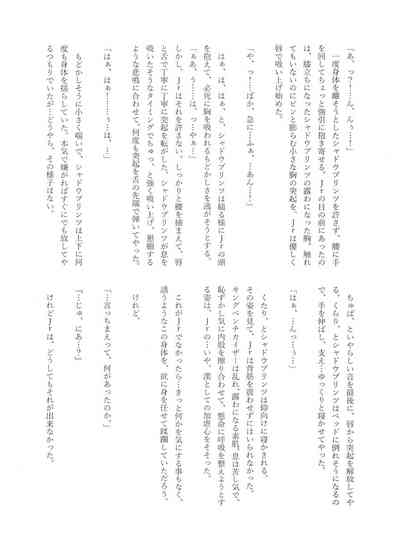 「あ、っ?!…ん、んぅ…!」
一度身体を離そうとしたシャドウプリンツを許さず、腰に手
を回してちょっと強引に抱き寄せる。Jrの目の前にあったの
は、膝立ちになったシャドウプリンツの露わになった胸。触れ
てもいないのにピンと膨らむ小さな胸の突起を、Jrは優しく
唇で吸い上げ始めた。
「や、っ!…ばか、急に…ふぁ、…あん…!」
はぁ、は、はぁ、と、シャドウプリンツは縋る様にJrの頭
を抱えて、必死に胸を吸われるもどかしさを逃がそうとする。
「ぁあ、う……は、…っや…ぁ…」
しかし、Jrはそれを許さない。しっかりと腰を捕まえて、唇
と舌で丁寧に丁寧に突起を転がした。シャドウプリンツが息を
吸いたそうなタイミングでちゅっ、と強く吸い上げ、懇願する
ような悲鳴に合わせて、何度も突起を舌の先端で弾いてやった。
「はぁ、はぁ……ぅ…は、…」
もどかしそうに小さく喘いで、シャドウプリンツは上下に何
度も身体を揺らしていた。本気で嫌がればすぐにでも放してや
るつもりでいたが…どうやら、その様子はない。
ちゅぱ、といやらしい音を最後に、唇から突起を解放してや
る。くらり、とシャドウプリンツはベッドに倒れそうになるの
で、手を伸ばし、支え…ゆっくりと寝かせてやった。
「はぁ、…んっ…ぅ…」
くたり、とシャドウプリンツは仰向けに寝かされる。
その姿を見て、Jrは背筋を震わせずにはいられなかった。
キングペンチカイザーは乱れ、露わになる素肌。息は苦し気で、
恥ずかし気に内股を擦り合わせて、懸命に呼吸を整えようとす
る姿は、Jrの…いや、漢としての加虐心をそそった。
これがJrでなかったら…きっと何かを気にする事もなく、
誘うようなこの身体を、欲に身を任せて蹂躙していただろう。
けれど、
「…言っちまえって、何があったのか」
「…じゅ、にあ…?」
けれどJrは、どうしてもそれが出来なかった。